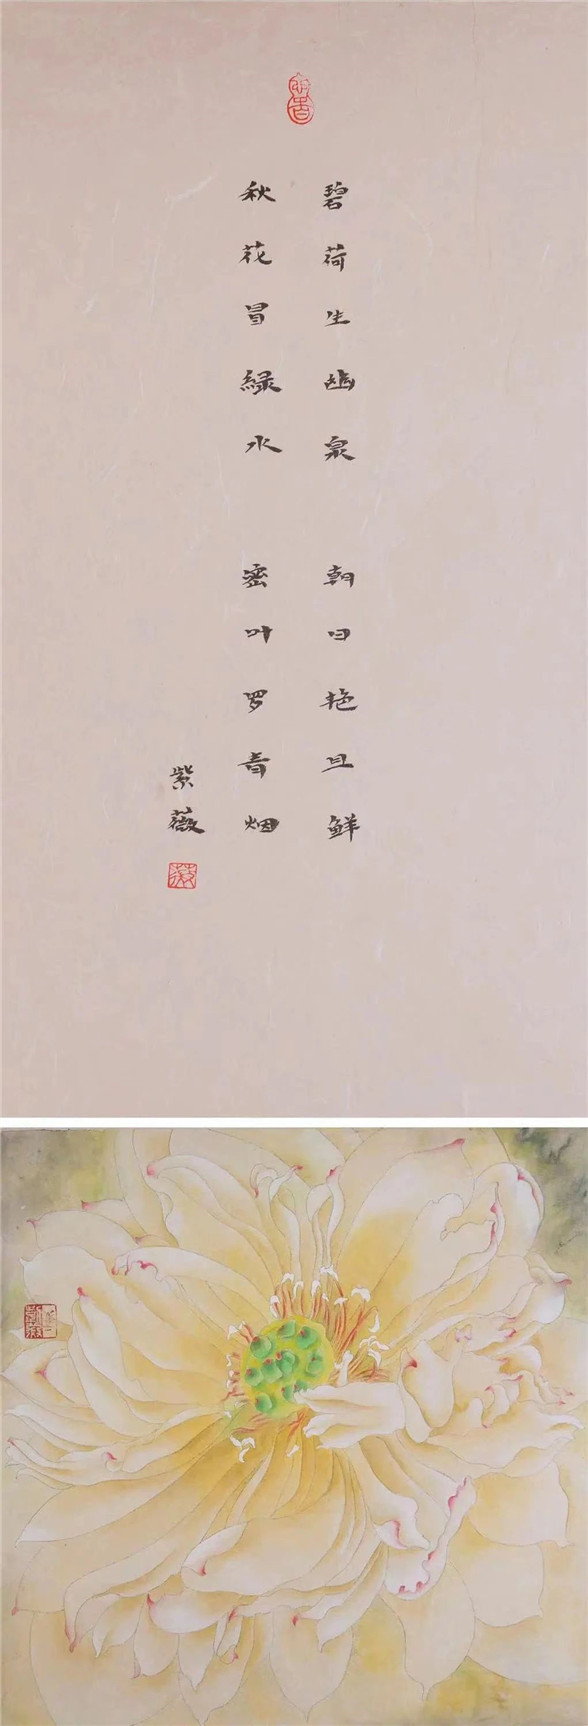 碧荷生幽泉 朝日艳且鲜
秋花冒緑水 密叶罗青烟
紫薇
薇